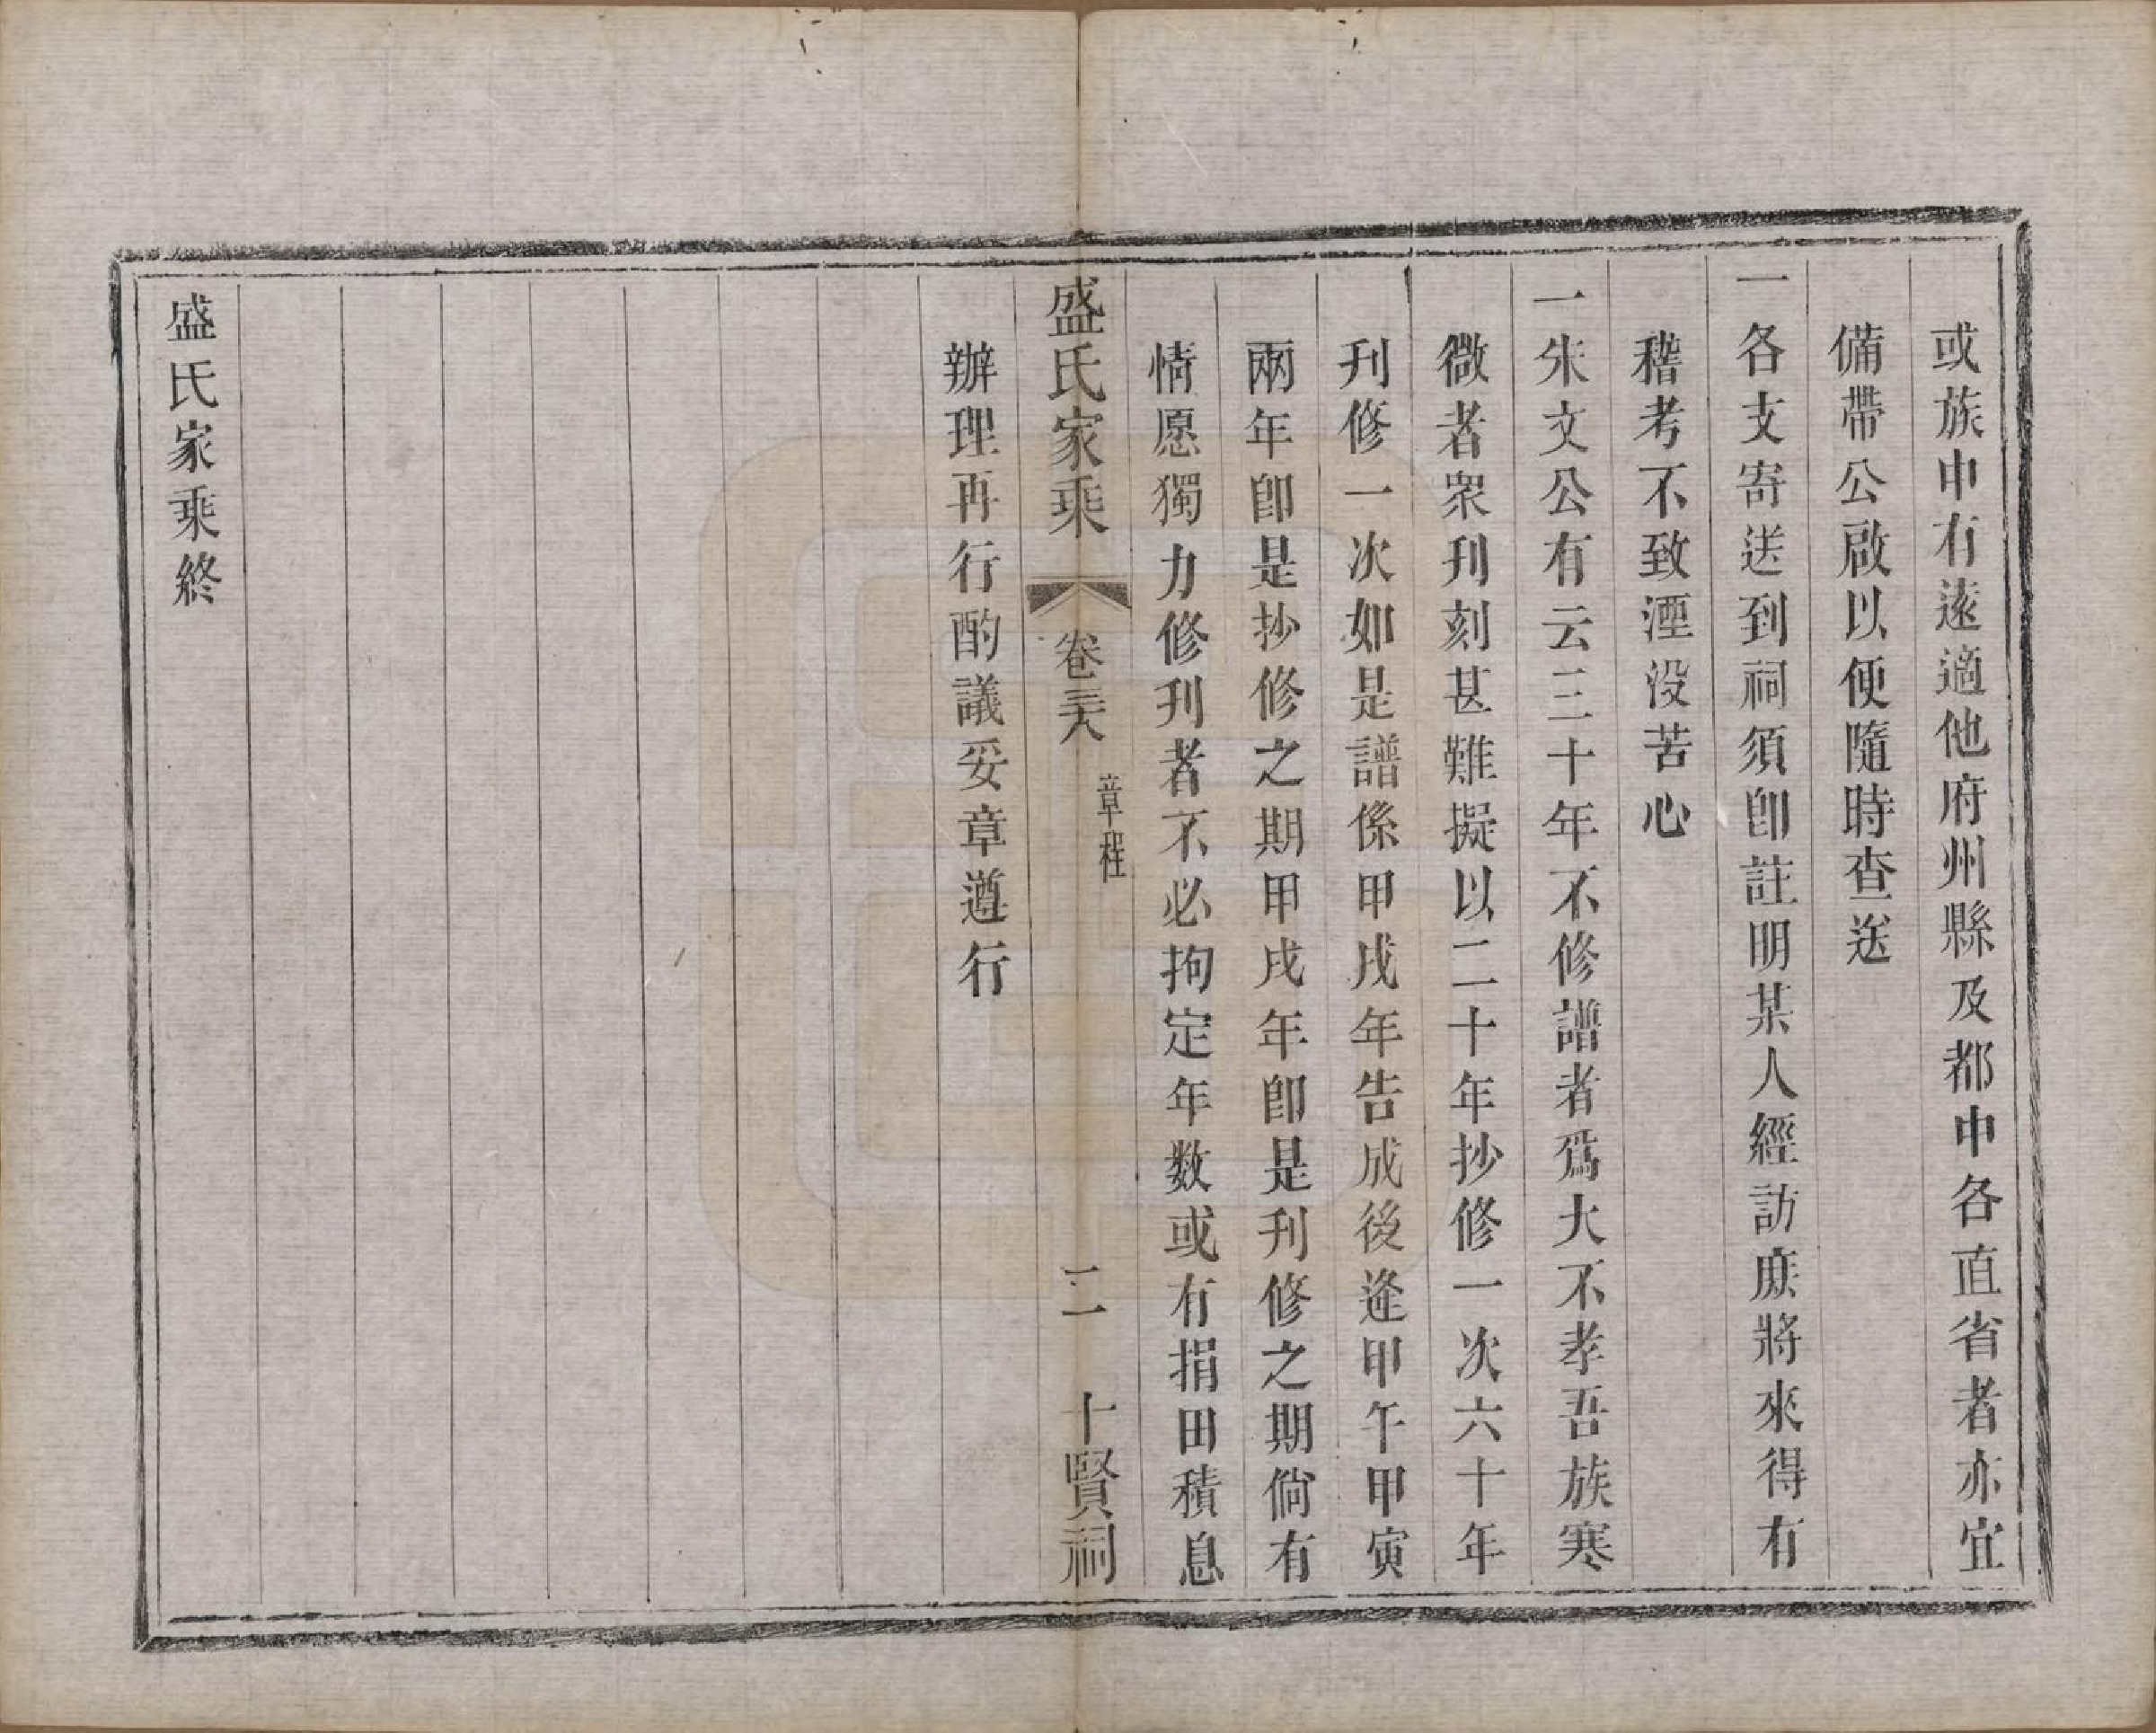 或族中有遠適他府州縣及都中各直省者亦宜
備帶公啟以便隨時查送
一各支寄送到祠須卽註明某人經訪庶將來得有
稽考不致湮没苦心
一朱文公有云三十年不修譜者爲大不孝吾族寒
微者衆刋刻甚難擬以二十年抄修一次六十年
刋修一次如是譜係甲戌年告成後逢甲午甲寅
兩年卽是抄修之期甲戌年卽是刋修之期倘有
情愿獨力修刋者不必拘定年数或有捐田積息
盛氏家乘
卷三六
章程
二
十賢祠
辦理再行酌議妥章遵行
盛氏家乘終